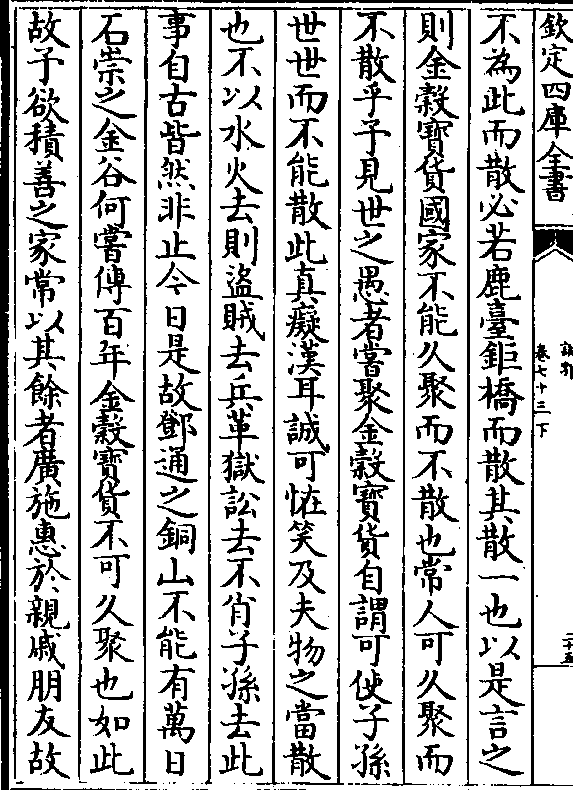 欽定四庫全書
說郛
卷七十三下
二十五
不為此而散必若鹿臺鉅橋而散其散一也以是言之
則金榖寶貨國家不能久聚而不散也常人可久聚而
不散乎予見世之愚者嘗聚金榖寶貨自謂可使子孫
世世而不能散此真癡漢耳誠可恠笑及夫物之當散
也不以水火去則盜賊去兵革獄訟去不肖子孫去此
事自古皆然非止今日是故鄧通之銅山不能有萬日
石崇之金谷何嘗傳百年金榖寶貨不可久聚也如此
故予欲積善之家常以其餘者廣施惠於親戚朋友故